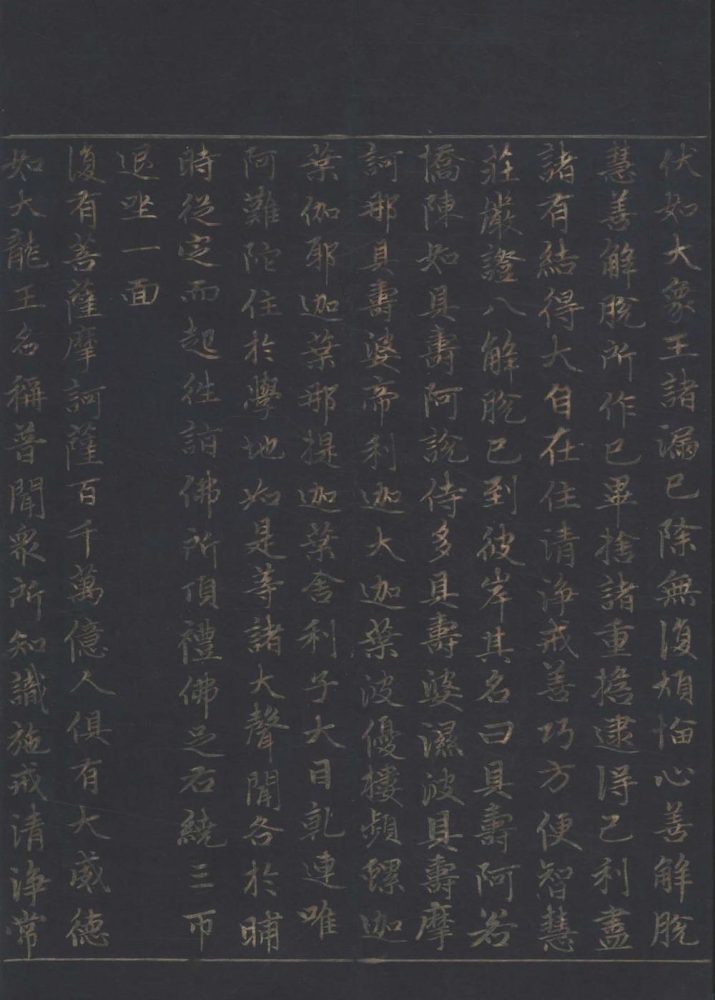 伏如大象王諸漏已除無復煩惱心善解脫
慧善解脫所作已畢捨諸重擔逮得己利盡
諸有結得大自在住清淨戒善巧方便智慧
莊嚴證八解脫已到彼岸其名曰具壽阿若
憍陳如具壽阿說侍多具壽婆濕波具壽摩
訶那具壽婆帝利迦大迦葉波優樓頻螺迦
葉伽耶迦葉那提迦葉舍利子大目乹連唯
阿難陀住於學地如是等諸大聲聞各於晡
時從定而起往詣佛所頂禮佛足右繞三帀
退坐一面
復有菩薩摩訶薩百千萬億人俱有大威德
如大龍王名稱普聞衆所知識施戒清淨常